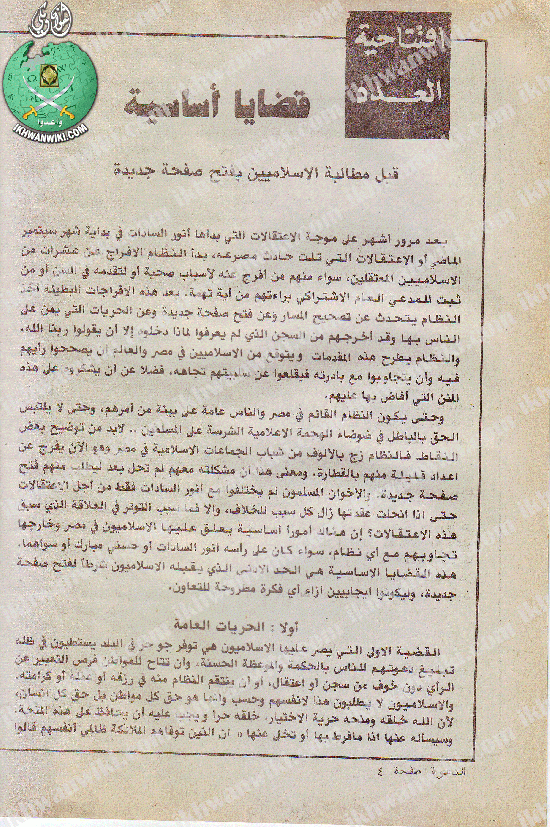 افتتاحية
العدد
قضايا أساسية
قبل مطالبة الاسلاميين بفتح صفحة جديدة
بعد مرور أشهر على موجة الاعتقالات التي بدأها أنور السادات في بداية شهر سبتمبر
الماضي أو الاعتقالات التي تلت حادث مصرعه، بدأ النظام الافراج عن عشرات من
الاسلاميين المعتقلين، سواء منهم من أفرج عنه لأسباب صحية أو لتقدمه في السن أو من
ثبت للمدعي العام الاشتراكي براءتهم من أية تهمة. بعد هذه الافراجات البطيئة أخذ
النظام يتحدث عن تصحيح المسار وعن فتح صفحة جديدة وعن الحريات التي يمن على
الناس بها وقد أخرجهم من السجن الذي لم يعرفوا لماذا دخلوه إلا أن يقولوا ربنا الله.
والنظام يطرح هذه المقدمات ويتوقع من الاسلاميين في مصر والعالم أن يصححوا رأيهم
فيه وأن يتجاوبوا مع بادرته فيقلعوا عن سلبيتهم تجاهه، فضلا عن أن يشكروه على هذه
المنن التي أفاض بها عليهم.
وحتى يكون النظام القائم في مصر والناس عامة على بينة من أمرهم، وحتى لا يلتبس
الحق بالباطل في ضوضاء الهجمة الاعلامية الشرسة على المسلمين .. لابد من توضيح بعض
النقاط. فالنظام زج بالألوف من شباب الجماعات الاسلامية في مصر وهو الآن يفرج عن
اعداد قليلة منهم بالقطارة، ومعنى هذا أن مشكلته معهم لم تحل بعد ليطلب منهم فتح
صفحة جديدة. والأخوان المسلمون لم يختلفوا مع أنور السادات فقط من أجل الاعتقالات
حتى اذا انحلت عقدتها زال كل سبب للخلاف، والا فما سبب التوتر في العلاقة الذي سبق
هذه الاعتقالات؟ إن هناك أموراً أساسية يعلق عليها الاسلاميون في مصر وخارجها
تجاوبهم مع أي نظام، سواء كان على رأسه أنور السادات أو حسني مبارك أو سواهما.
هذه القضايا الاساسية هي الحد الأدنى الذي يقبله الاسلاميون شرطاً لفتح صفحة
جديدة، وليكونوا ايجابيين ازاء أي فكرة مطروحة للتعاون.
أولا : الحريات العامة
القضية الأولى التي يصر عليها الاسلاميون هي توفر جو حر في البلد يستطيعون في ظله
تبليغ دعوتهم للناس بالحكمة والموعظة الحسنة، وأن تتاح للمواطن فرص التعبير عن
الرأي دون خوف من سجن أو اعتقال، أو أن ينتقم النظام منه في رزقه أو عمله أو كرامته.
والاسلاميون لا يطلبون هذا لإنفسهم وحسب وإنما هو حق كل مواطن بل حق كل انسان،
لأن الله خلقه ومنحه حرية الاختيار، خلقه حراً ويجب عليه أن يحافظ على هذه المنحة،
وسيسأله عنها اذا ما فرط بها أو تخلى عنها « ان الذين توفاهم الملائكة ظالمي أنفسهم قالوا
صفحة ٤
IKHWANWIKI.COM
ikhwanwiki.com